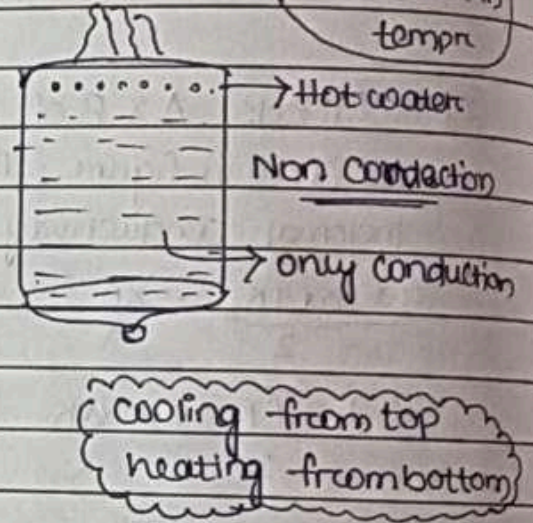 tempn
Hot water
Non Condection
only conduction
cooling from top
heating from bottom